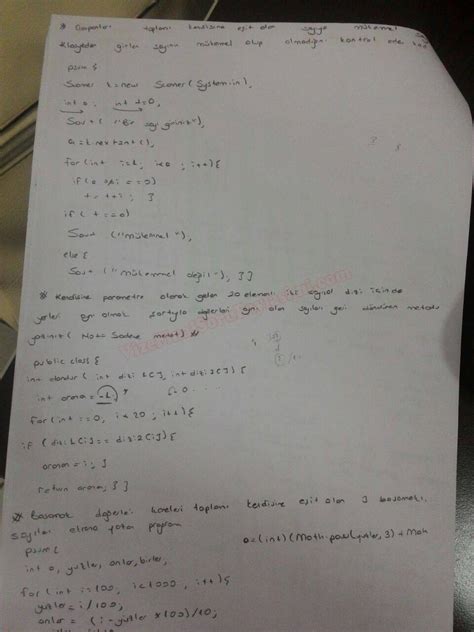 * Çarpanları toplamı kendisine eşit olan sayıya mükemmel
Klavyeden girilen sayının mükemmel olup olmadığını kontrol eden kod
psvm {
Scanner k=new Scanner(System.in),
int a, int t=0,
Sout ("Bir sayi giriniz"),
a=k.nextInt(),
for(int i=1, i<a, i++){
if(a%i==0)
t=t+i; }
if (t==a)
Sout ("Mükemmel"),
else {
Sout ("mükemmel değil"), }}
* Kendisine parametre olarak gelen 20 elemanlı iki sayısal dizi içinde
yerleri aynı olmak şartıyla değerleri aynı olan sayıları geri döndüren metodu
yazınız (Not: Sadece metot)
public class {
int dondur (int dizi1[], int dizi2[]) {
int arama=-1,
for(int i=0, i<20, i++){
if (dizi1[i]==dizi2[i]){
arama=i, }
return arama, }}
* Basamak değerleri kareleri toplamı kendisine eşit olan 3 basamaklı
sayıları ekrana yazan program
psvm {
a=(int)(Math.pow(yuzler,3)+Math
int a, yuzler, onlar, birler,
for(int i=100, i<1000, i++){
yuzler=i/100,
onlar = (i-yuzler*100)/10;